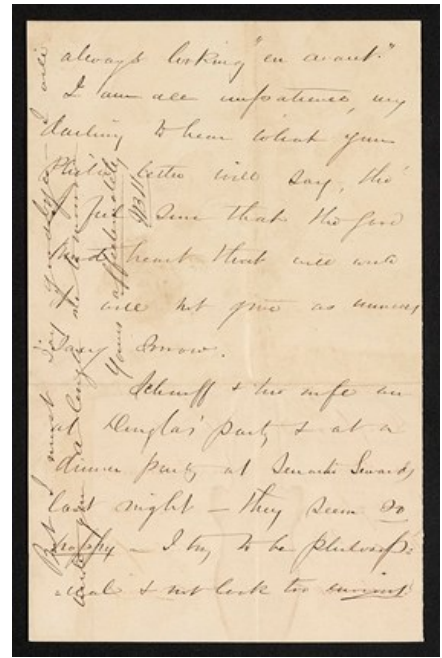 always looking "en avant."
I am all impatience, my
darling to hear what your
Phil. letter will say, tho'
I feel sure that the good
kind heart that will write
it will not give us unneces
sary sorrow.
Schruff & his wife are
at Douglas' party & at a
dinner party at Senator Sewards
last night — they seem so
happy — I try to be philosoph=
=ical & not look too envious.
But I must say good bye — I will
write you at length
Yours affectionately